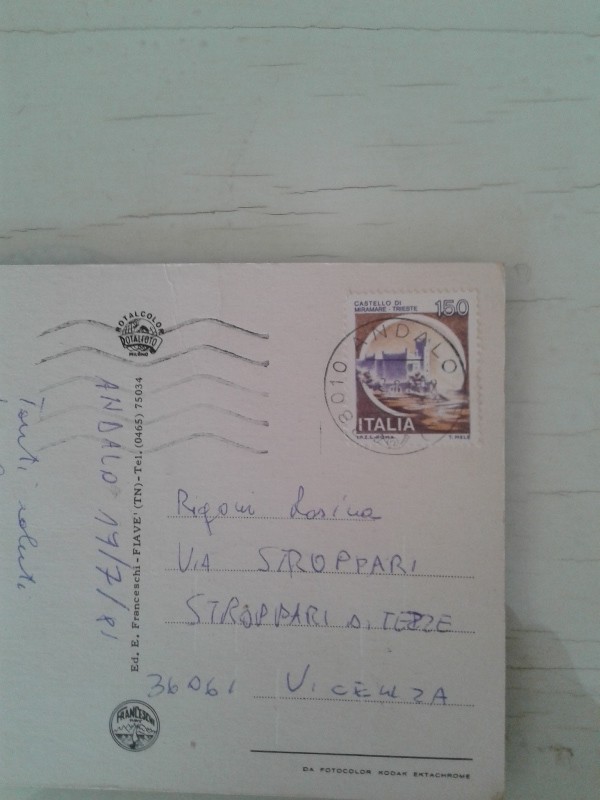 CASTELLO DI
MIRAMARE - TRIESTE
150
ITALIA
I.P.Z.S. ROMA
T. MIELE
ANDALO
ROTALCOLOR
ROTALFOTO
MILANO
ANDALO 17/7/81
Tanti saluti
Ed. E. Franceschi - FIAVE' (TN) - Tel. (0465) 75034
FRANCESCHI
Rigoni Rosina
VIA STROPPARI
STROPPARI DI TEZZE
36061 VICENZA
DA FOTOCOLOR KODAK EKTACHROME